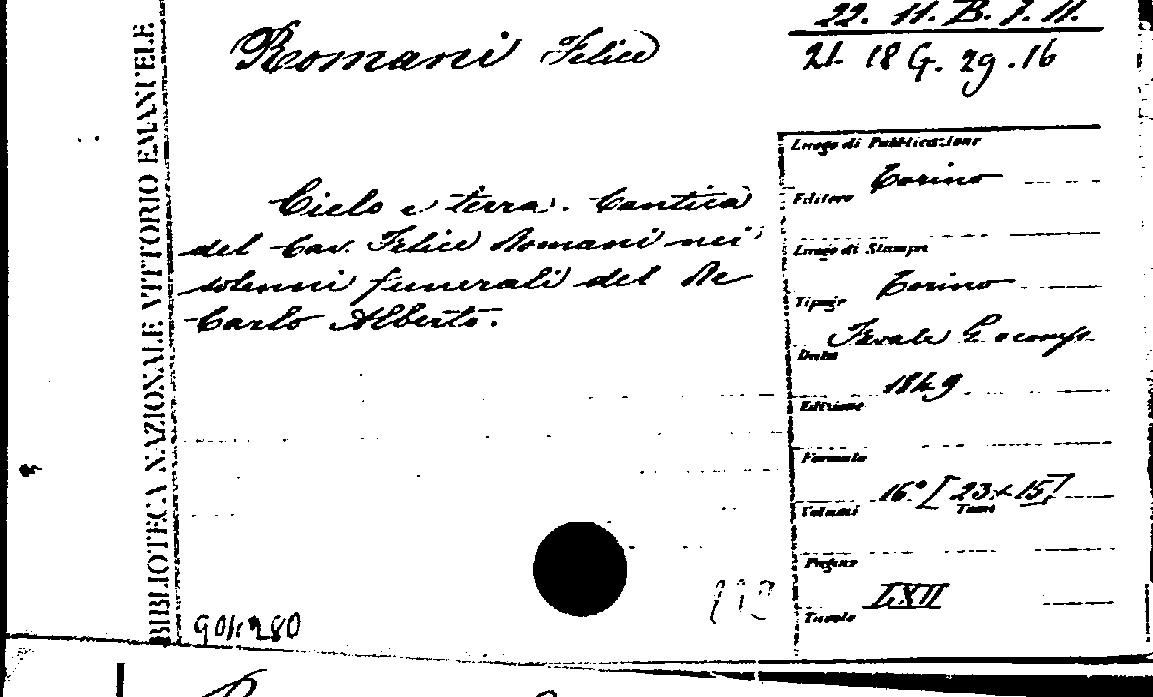 22. 11. B. 7. 11.
Romani Felice
21. 18 G. 29. 16
BIBLIOTECA NAZIONALE VITTORIO EMANUELE
Cielo e terra. Cantica
del Cav. Felice Romani nei
solenni funerali del Re
Carlo Alberto.
Luogo di Pubblicazione
Torino
Editore
Luogo di Stampa
Torino
Tipogr
Favale G. e comp.
Data
1849
Edizione
Formato
16° [23×15]
Volumi Tomi
Pagine
LXII
Tavole